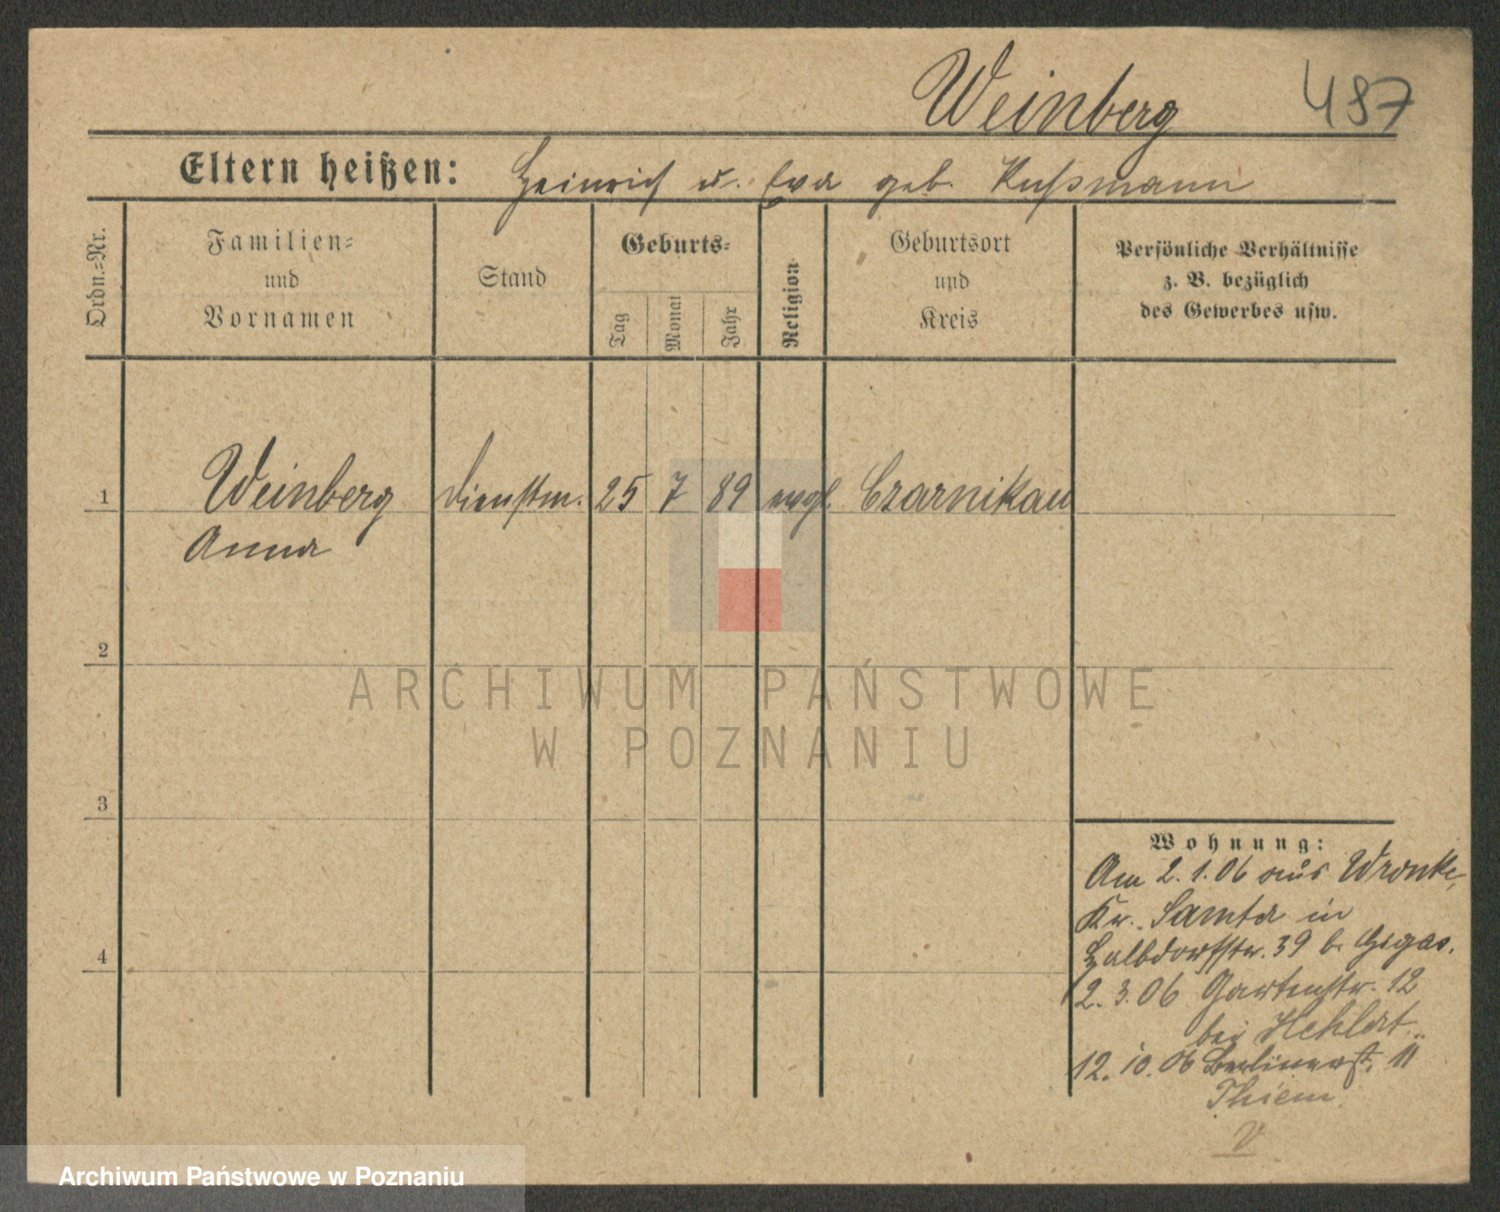 Weinberg 487
Eltern heißen: Heinrich u. Eva geb. Kußmann
Ordn.=Nr.
Familien=
und
Vornamen
Stand
Geburts=
Tag
Monat
Jahr
Religion
Geburtsort
und
Kreis
Persönliche Verhältnisse
z. B. bezüglich
des Gewerbes usw.
1 Weinberg Dienstm. 25 7 89 evgl. Czarnikau
Anna
2
3
4
Wohnung:
Am 2.1.06 aus Wronke,
Kr. Samter in
Halbdorfstr. 39 b.
2.3.06 Gartenstr. 12
bei
12.10.06 Berlinerst. 11
Thiem
V
ARCHIWUM PAŃSTWOWE
W POZNANIU
Archiwum Państwowe w Poznaniu